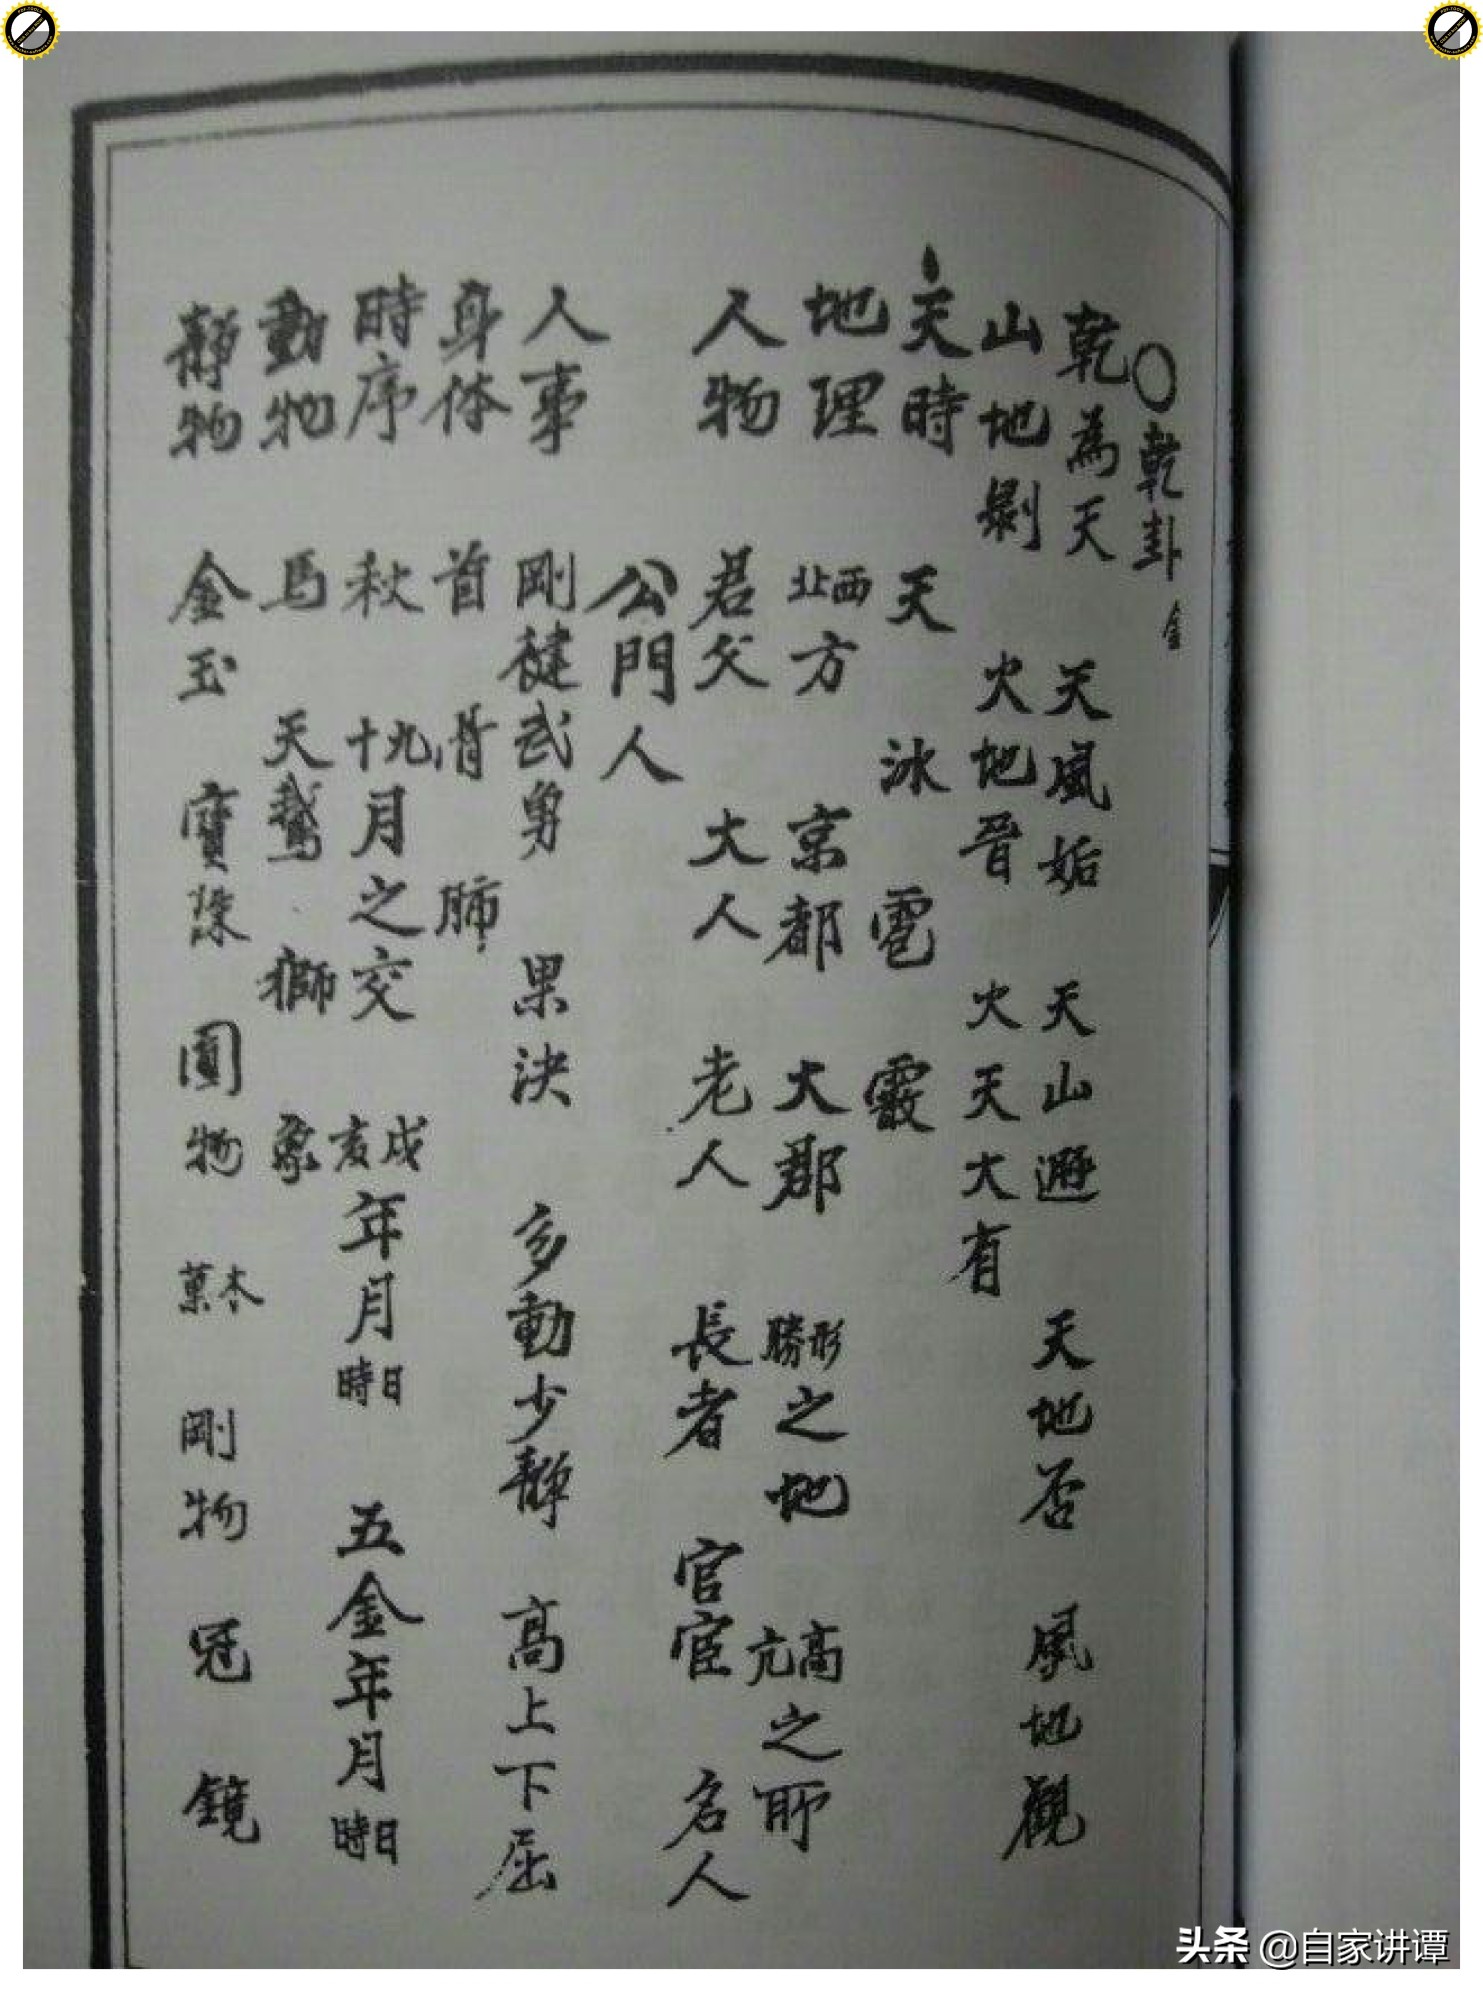 〇乾卦 金
乾為天 天風姤 天山遯 天地否 風地觀
山地剝 火地晉 火天大有
天時 天 冰 雹 霰
地理 西北方 京都 大郡 形勝之地 高亢之所
人物 君父 大人 老人 長者 官宦 名人
公門人
人事 剛健武勇 果決 多動少靜 高上下屈
身体 首 骨 肺
時序 秋 九十月之交 戌亥年月日時 五金年月日時
動物 馬 天鵝 獅 象
靜物 金玉 寶珠 圓物 木菓 剛物 冠 鏡
头条 @自家讲谭